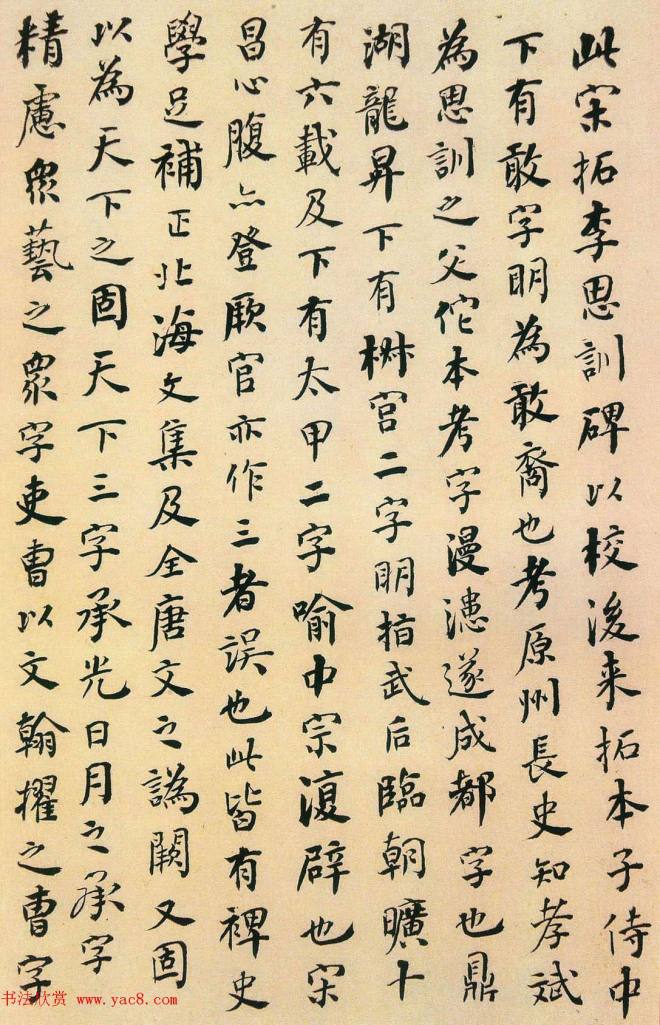 此宋拓李思訓碑以校後来拓本子侍中
下有敢字明為敢裔也考原州長史知孝斌
為思訓之父佗本考字漫漶遂成都字也鼎
湖龍昇下有桝宫二字明指武后臨朝曠十
有六載及下有太甲二字喻中宗復辟也宋
昌心腹亦登厥官亦作三者誤也此皆有裨史
學足補正北海文集及全唐文之譌闕又固
以為天下之固天下三字承光日月之承字
精慮眾藝之眾字吏曹以文翰擢之曹字
书法欣赏 www.yac8.com